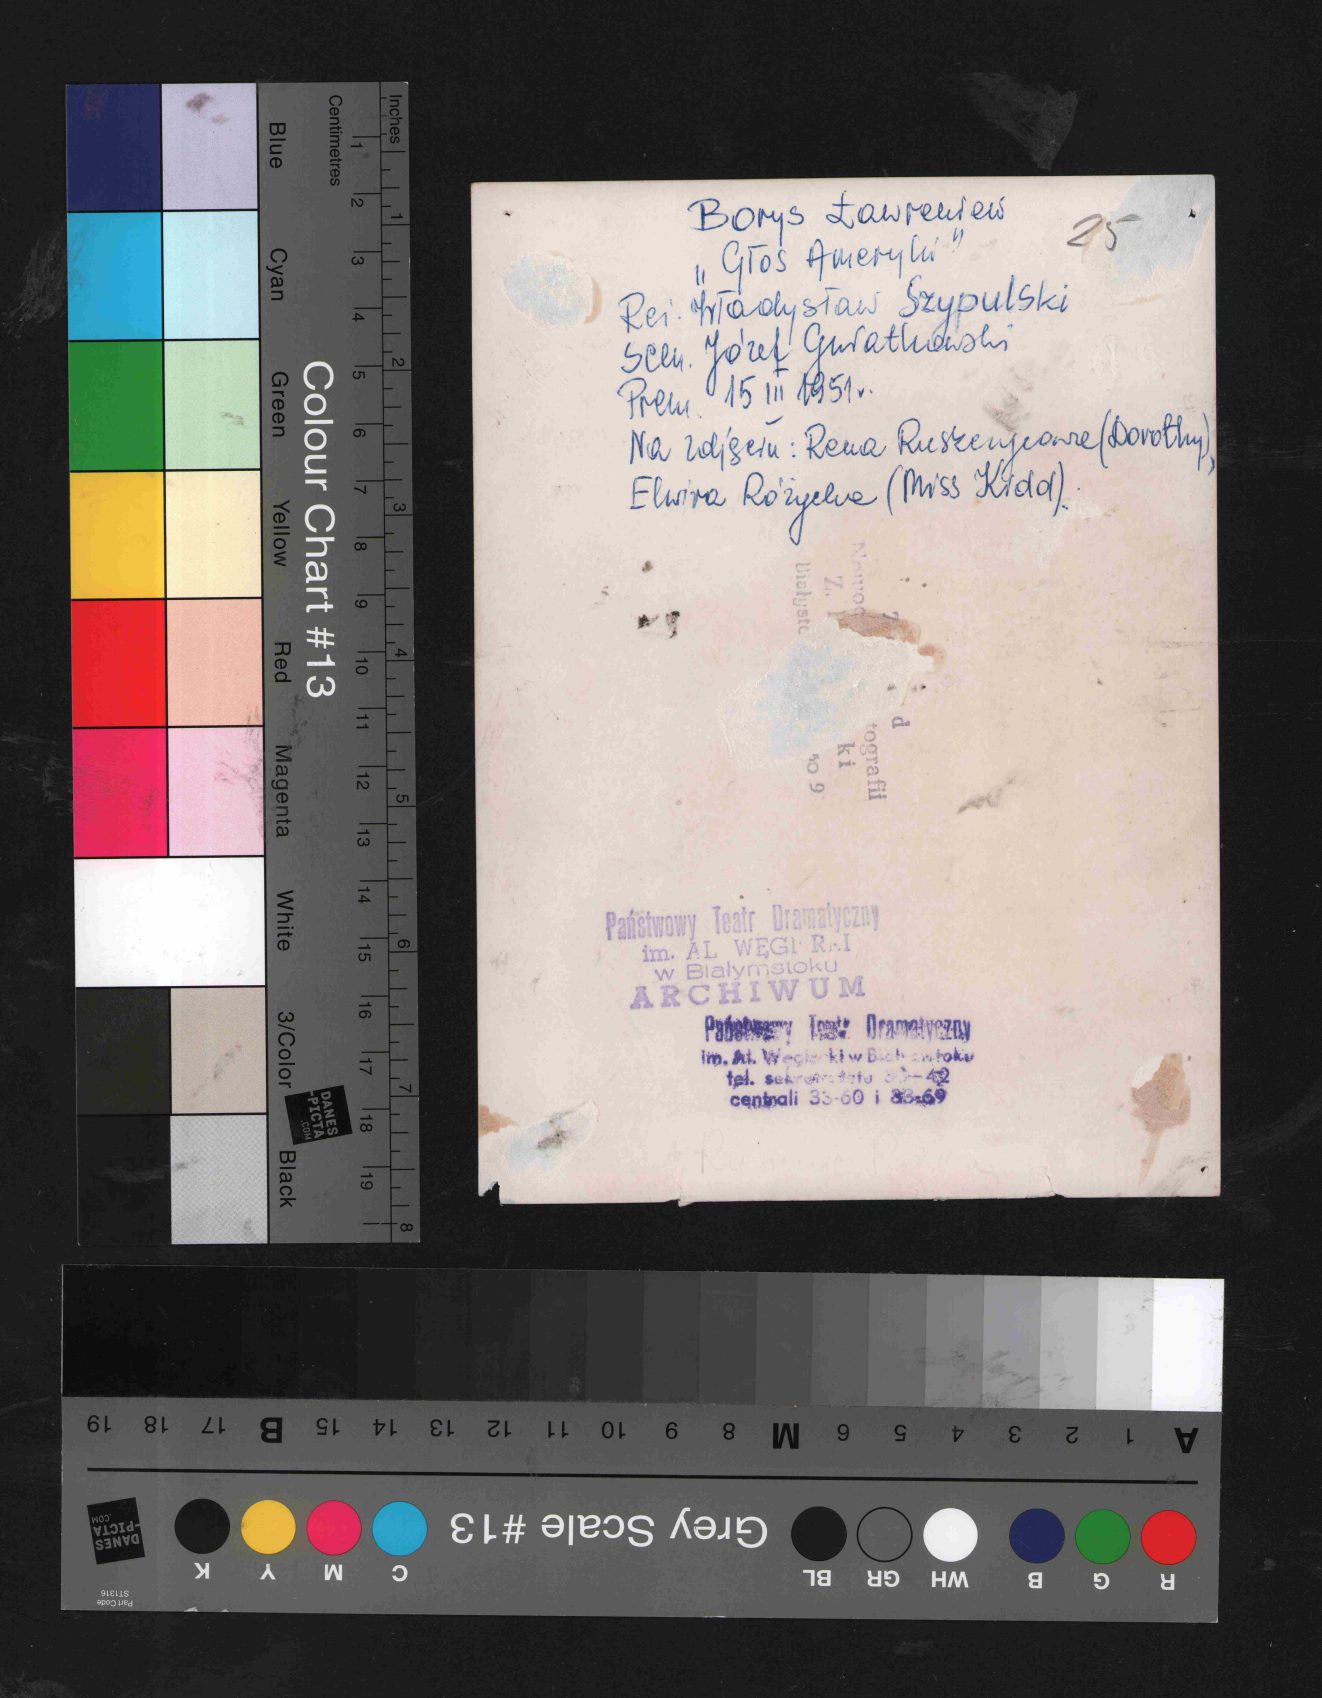 Blue
Cyan
Green
Yellow
Red
Magenta
White
3/Color
Black
Colour Chart #13
Centimetres
1 2 3 4 5 6 7 8 9 10 11 12 13 14 15 16 17 18 19
Inches
1 2 3 4 5 6 7 8
DANES
-PICTA
.COM
25
Borys Ławreniew
„Głos Ameryki"
Reż. Władysław Szypulski
Scen. Józef Gwiatkowski
Prem. 15 III 1951r.
Na zdjęciu: Rena Ruszczycowa (Dorothy),
Elwira Różycka (Miss Kidd).
Z d
tografii
Z. ki
Białysto
9
Państwowy Teatr Dramatyczny
im. AL WĘGI RKI
w Białymstoku
ARCHIWUM
Państwowy Teatr Dramatyczny
im. Al. Węgierki w Białymstoku
tel. sekretariatu 42
centrali 33-60 i 33-69
A 1 2 3 4 5 6 M 8 9 10 11 12 13 14 15 B 17 18 19
R G B WH GR BL Grey Scale #13 C M Y K
DANES
-PICTA
.COM
Part Code
ST1316